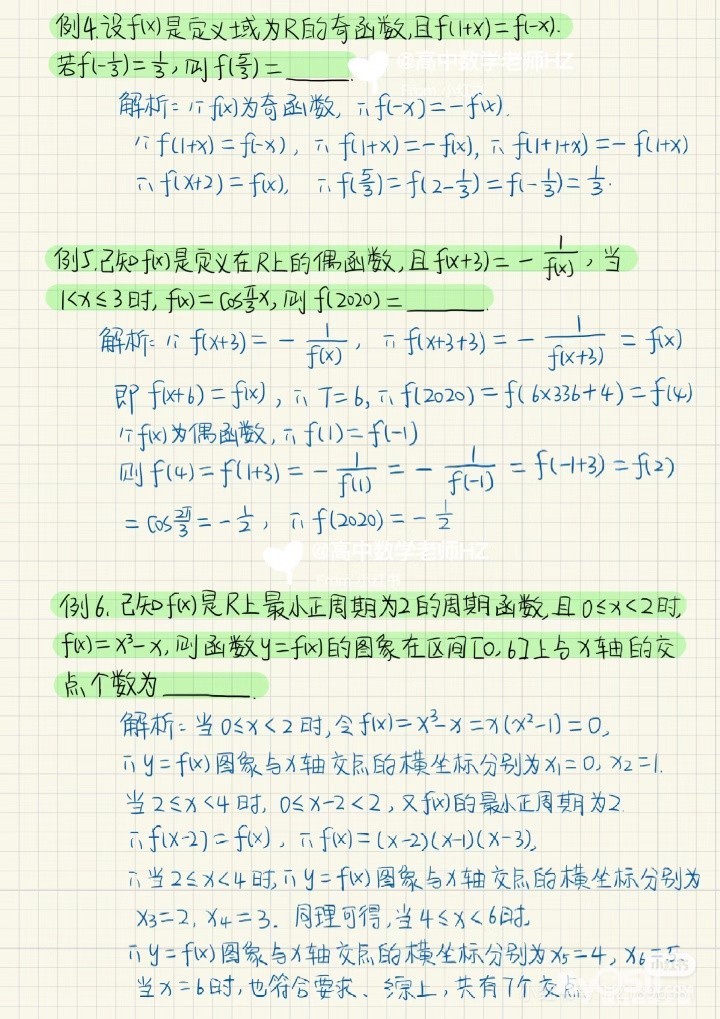 例4.设f(x)是定义域为R的奇函数,且f(1+x)=f(-x).
若f(-1/3)=1/3,则f(5/3)=______.
@高中数学老师HZ
解析:∵f(x)为奇函数,∴f(-x)=-f(x).
∵f(1+x)=f(-x),∴f(1+x)=-f(x),∴f(1+1+x)=-f(1+x)
∴f(x+2)=f(x),∴f(5/3)=f(2-1/3)=f(-1/3)=1/3.
例5.已知f(x)是定义在R上的偶函数,且f(x+3)=-1/f(x),当
1<x≤3时,f(x)=cosπ/3x,则f(2020)=______.
解析:∵f(x+3)=-1/f(x),∴f(x+3+3)=-1/f(x+3)=f(x)
即f(x+6)=f(x),∴T=6,∴f(2020)=f(6×336+4)=f(4)
∵f(x)为偶函数,∴f(1)=f(-1)
则f(4)=f(1+3)=-1/f(1)=-1/f(-1)=f(-1+3)=f(2)
=cos2π/3=-1/2,∴f(2020)=-1/2
@高中数学老师HZ
例6.已知f(x)是R上最小正周期为2的周期函数,且0≤x<2时,
f(x)=x³-x,则函数y=f(x)的图象在区间[0,6]上与x轴的交
点个数为______.
解析:当0≤x<2时,令f(x)=x³-x=x(x²-1)=0,
∴y=f(x)图象与x轴交点的横坐标分别为x₁=0,x₂=1.
当2≤x<4时,0≤x-2<2,又f(x)的最小正周期为2.
∴f(x-2)=f(x),∴f(x)=(x-2)(x-1)(x-3),
∴当2≤x<4时,∴y=f(x)图象与x轴交点的横坐标分别为
x₃=2,x₄=3.同理可得,当4≤x<6时,
∴y=f(x)图象与x轴交点的横坐标分别为x₅=4,x₆=5.
当x=6时,也符合要求、综上,共有7个交点